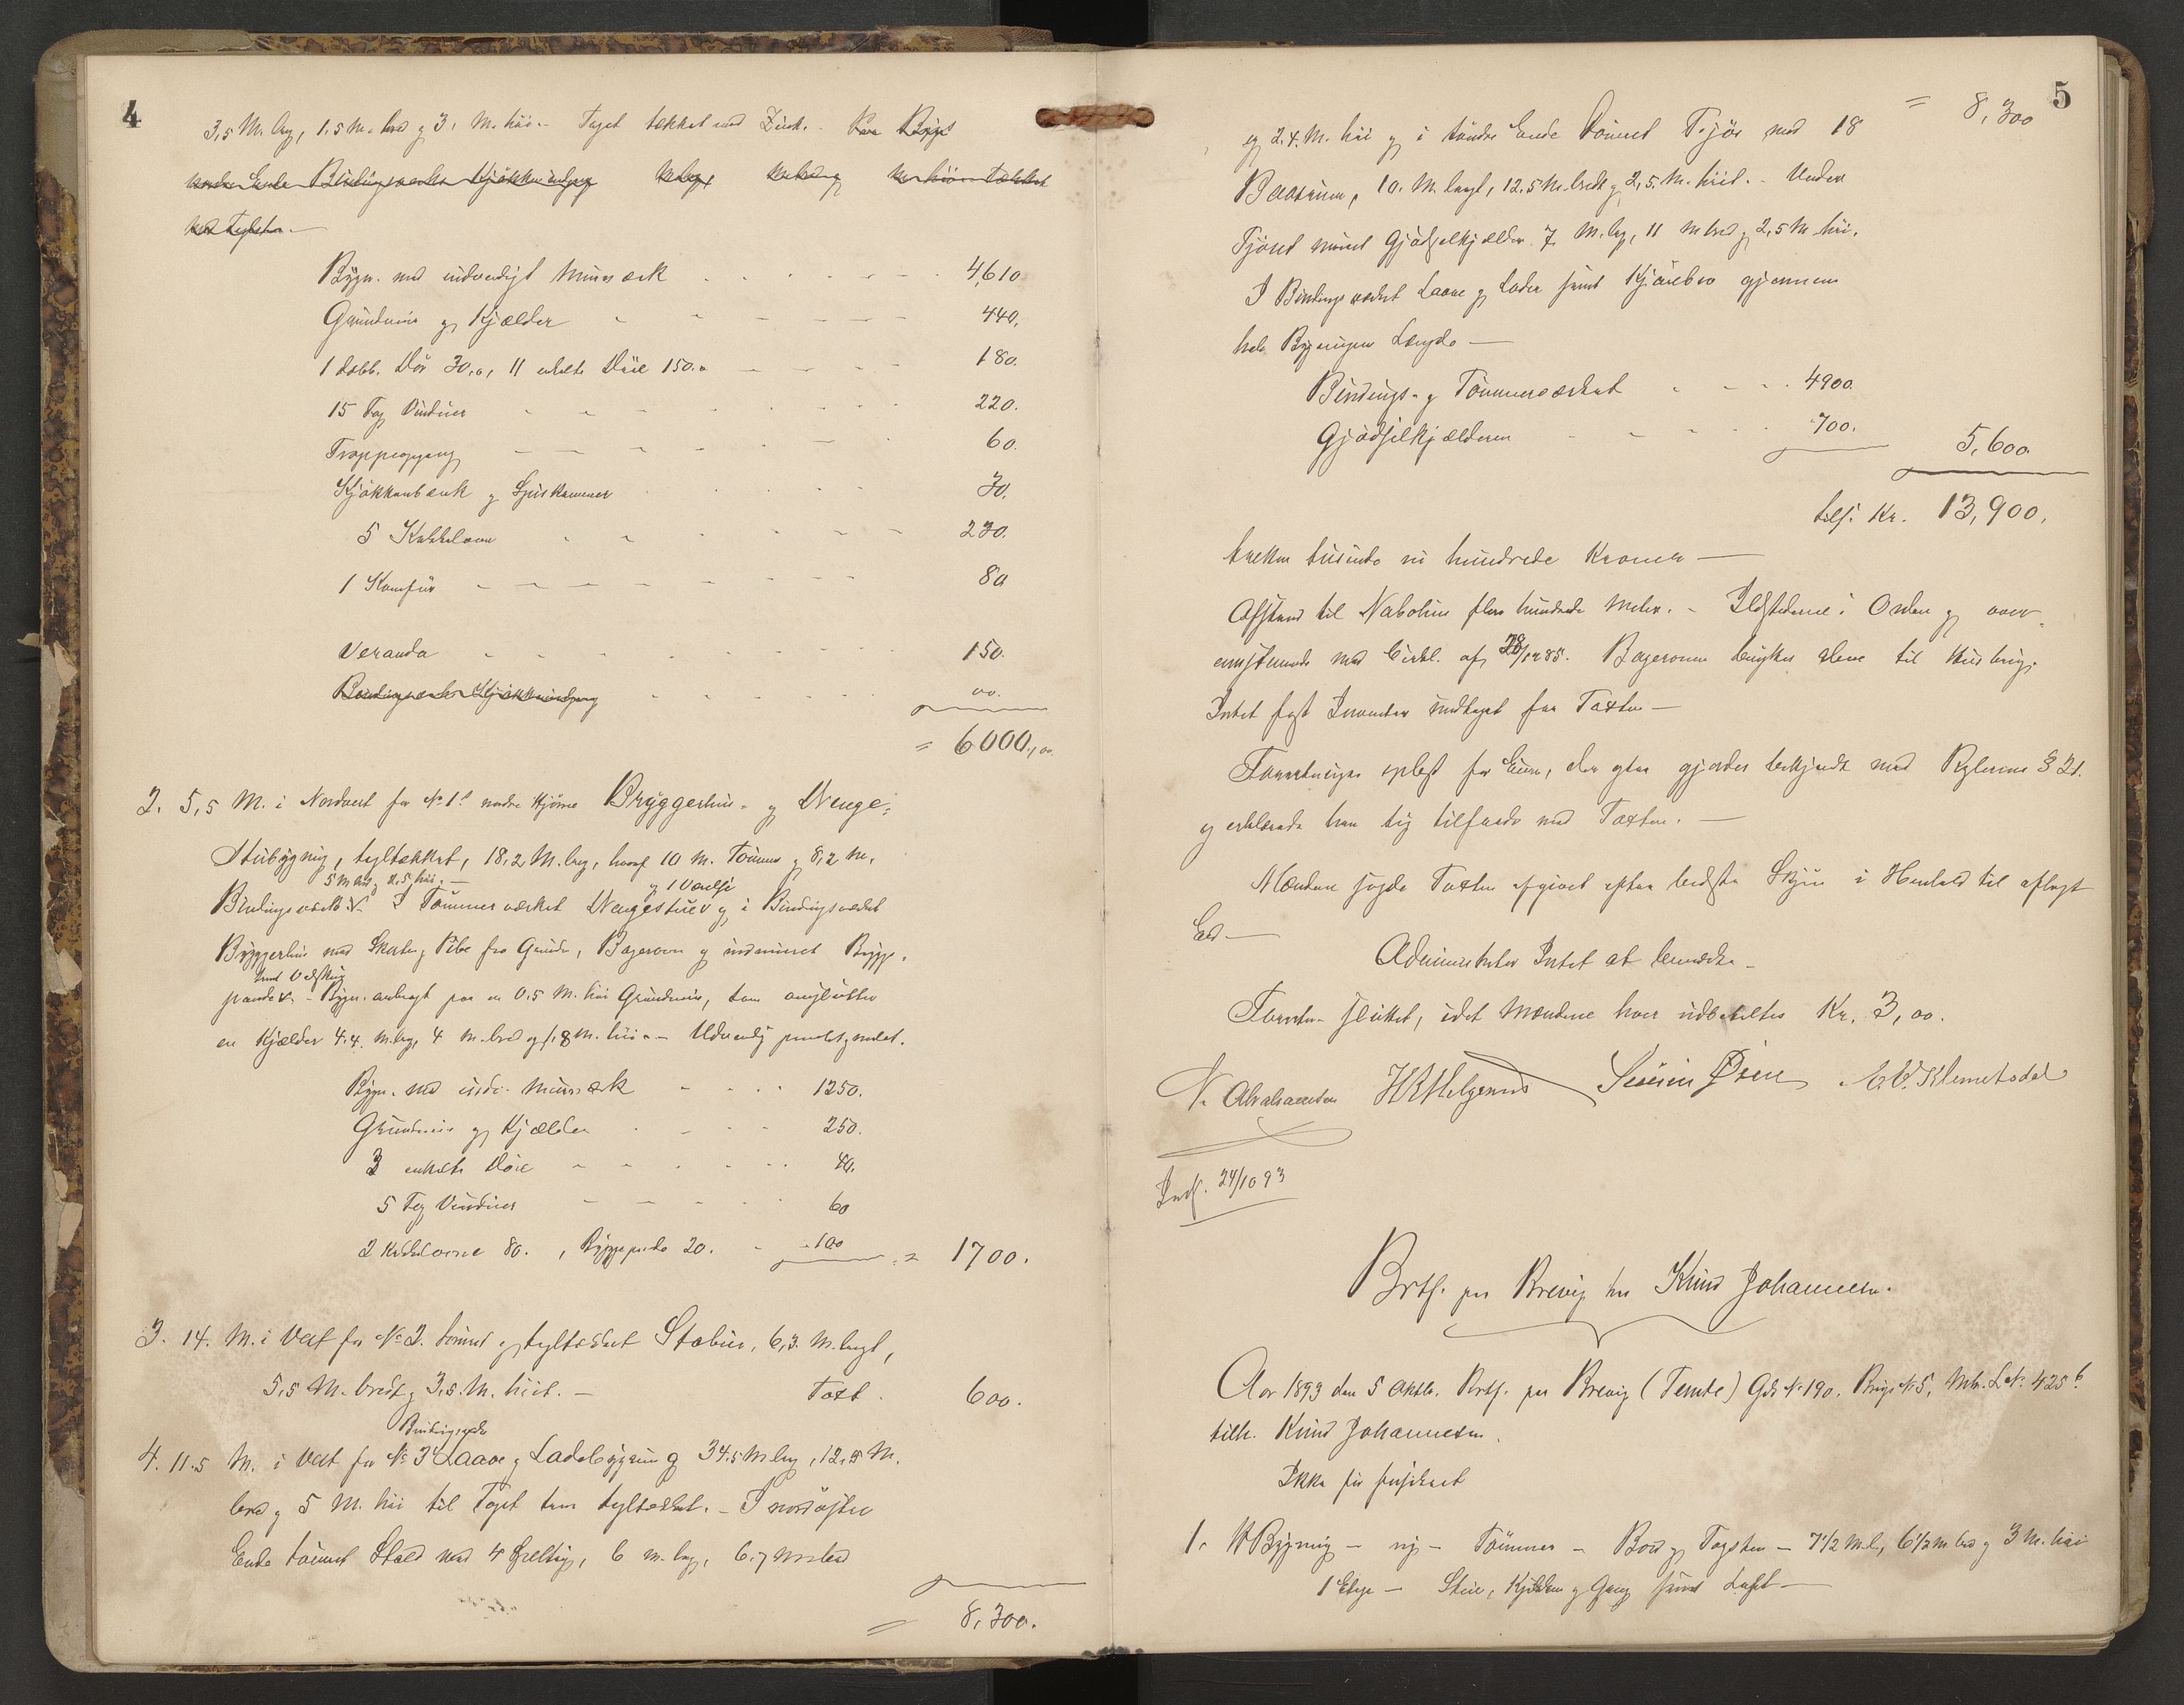 4
3,5 M. lang, 1,5 M. bred og 3, M. høi. - Taget tækket med Zink. - Paa Bygn.
nordre Ende Bindingsværks Kjøkkenindgang M. lang M. bred og M. høi Tækket
med Taksten. -
Bygn. med indvendigt Murværk 4,610
Grundmur og Kjælder 440.
1 dobb. Dør 30,00, 11 enkelte Døre 150.00 180.
15 Fag Vinduer 220.
Trappeopgang 60.
Kjøkkenbænk og Spiskammer 30.
5 Kakkelovne 230.
1 Komfur 80
Veranda 150.
Bindingsværks Kjøkkenindgang 00.
= 6000,00
2. 5,5 M. i Nordvest for No 1s nordre Hjørne Bryggerhus- og Drenge-
stubygning, tegltækket, 18,2 M. lang, hvoraf 10 M. Tømmer og 8,2 M.
5 M bred og 2,5 høi. -
Bindingsværk. I Tømmerværket Drengestuer og 1 Værelse og i Bindingsværket
Bryggerhus med Skorsten, Pibe fra Grunden, Bagerovn og indmuret Brygge-
samt Vedskur
pande. - Bygn. anbragt paa en 0.5 M. høi Grundmur, som omslutter
en Kjælder 4.4. M. lang, 4 M. bred og 1,8 M. høi. - Udvendig panelt og malet.
Bygn. med indv. Murværk 1250.
Grundmur og Kjælder 250.
3 enkelte Døre 40.
5 Fag Vinduer 60
2 Kakkelovne 80. , Bryggepande 20. 100 = 1700.
3. 14. M. i Vest for No 2. tømret og tegltækket Stabur, 6,3. M. langt,
5,5 M. bredt og 3,5. M. høit. - Taxt. 600.
Bindingsværks
4. 11.5 M. i Vest for No 3 Laave og Ladebygning 34.5 M lang, 12,5 M.
bred og 5 M. høi til Taget som tegltækket. - I nordøstre
Ende tømret Stald med 4 Spiltoug, 6 M. lang, 6,7 M bred
= 8,300.
5
= 8,300
og 2.4. M. høi og i søndre Ende tømret Fjøs med 18
Baasrum, 10. M. langt, 12.5 M. bredt og 2,5. M. høit. - Under
Fjøset muret Gjødselkjælder 7 M. lang, 11 M bred og 2,5 M høi.
I Bindingsværket Laave og Lader samt Kjørebro gjennem
hele Bygningens Længde -
Bindings- og Tømmerværket 4900.
Gjødselkjælderen 700. 5,600.
tils. Kr. 13,900.
tretten tusinde ni hundrede Kroner -
Afstand til Nabohus flere hundrede Meter. - Ildstederne i Orden og over-
ensstemmende med Cirkl. af 1885. Bagerovnen benyttes alene til Husbrug.
Intet fast Inventar medtaget for Taxten -
Forretningen oplæst for Eieren, der ogsaa gjordes bekjendt med Reglernes § 21.
og erklærede han sig tilfreds med Taxten. -
Mændene sagde Taxten afgivet efter bedste Skjøn i Henhold til aflagt
Ed -
Administrator Intet at bemærke -
Forretn. sluttet, idet Mændene hver udbetaltes Kr. 3,00.
N. Abrahamsen H R Helgesen Severin Øien E. O. Klemetsdal
Inds. 24/10 93
Brtf. paa Brevig hos Knud Johannesen.
Aar 1893 den 5 Oktbr. Brtf. paa Brevig (Temte) Gds No 190. Brugs No 5, Mtr. L No 425 b.
tilh. Knud Johannesen.
Ikke før forsikret
1. V Bygning - ny - Tømmer - Bord og Tagsten - 7 1/2 M. l., 6 1/2 M bred og 3 M. høi
1 Etage - Stue, Kjøkken og Gang samt Loft -